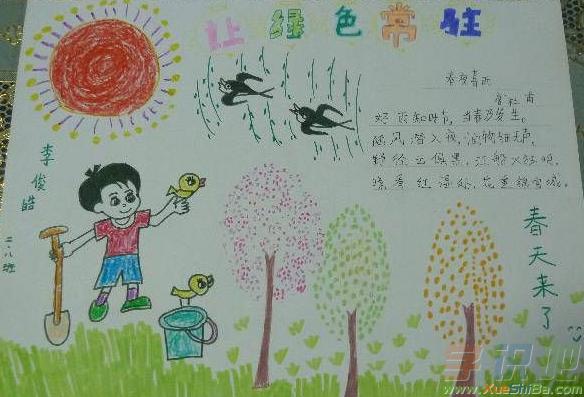 让绿色常驻
春夜喜雨
唐杜甫
好雨知时节,当春乃发生。
随风潜入夜,润物细无声。
野径云俱黑,江船火独明。
晓看红湿处,花重锦官城。
李俊皓
二.八班
春天来了
学识吧
www.XueShiBa.com